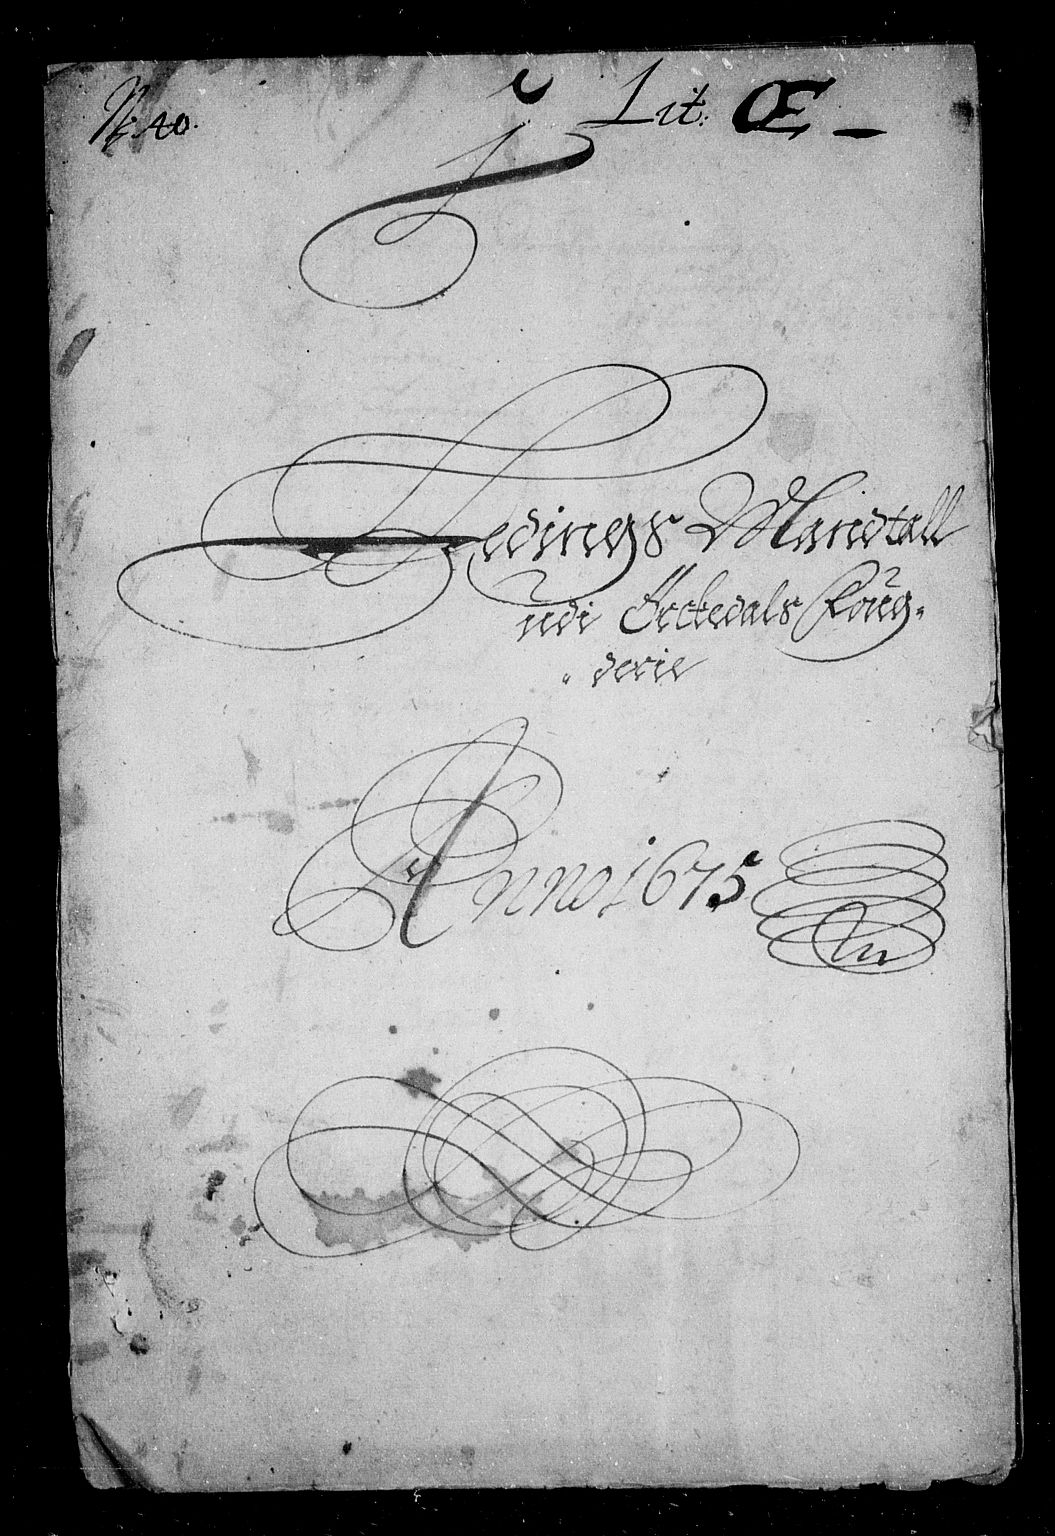 No. 40.
Lit: Œ
Ledings Mandtall
udi Örckedals Foug-
derie
Anno 1675